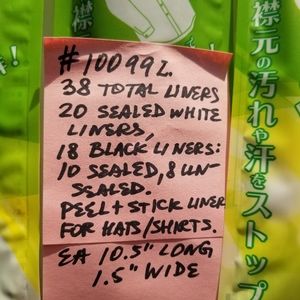 #10099L.
38 TOTAL LINERS
20 SEALED WHITE
LINERS,
18 BLACK LINERS:
10 SEALED, 8 UN-
SEALED.
PEEL + STICK LINER
FOR HATS/SHIRTS.
EA 10.5" LONG
1.5" WIDE
襟元の汚れや汗をストップ
!